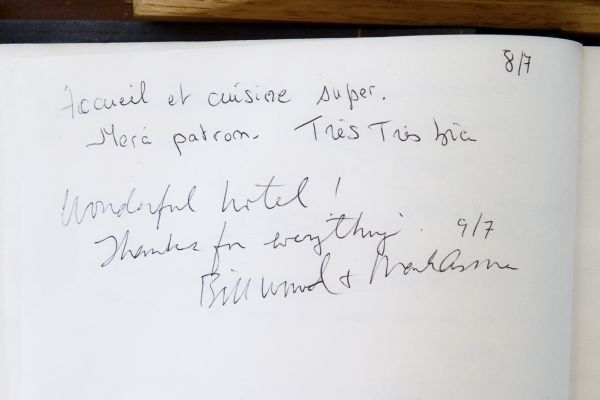 8/7
Accueil et cuisine super.
Merci patron. Très Très bien
Wonderful hotel !
Thanks for everything.
9/7
Bill Wood +